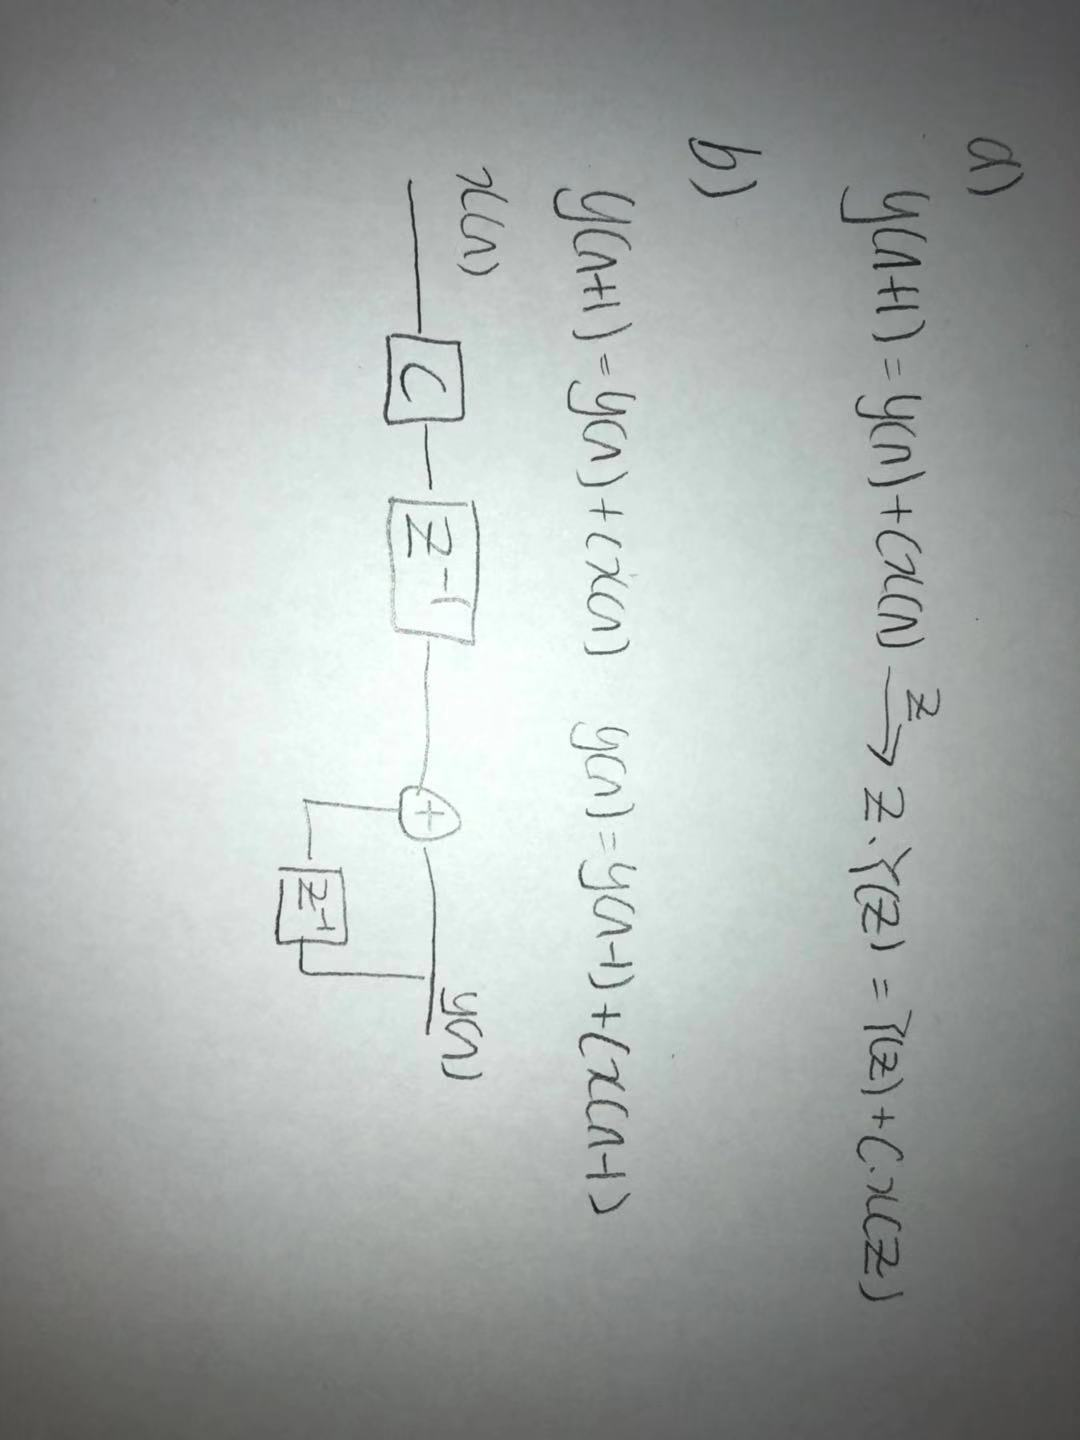 a)
y(n+1) = y(n) + Cx(n) —z→ z·Y(z) = Y(z) + C·x(z)
b)
y(n+1) = y(n) + Cx(n) y(n) = y(n-1) + Cx(n-1)
x(n) y(n)
C z⁻¹ +
z⁻¹